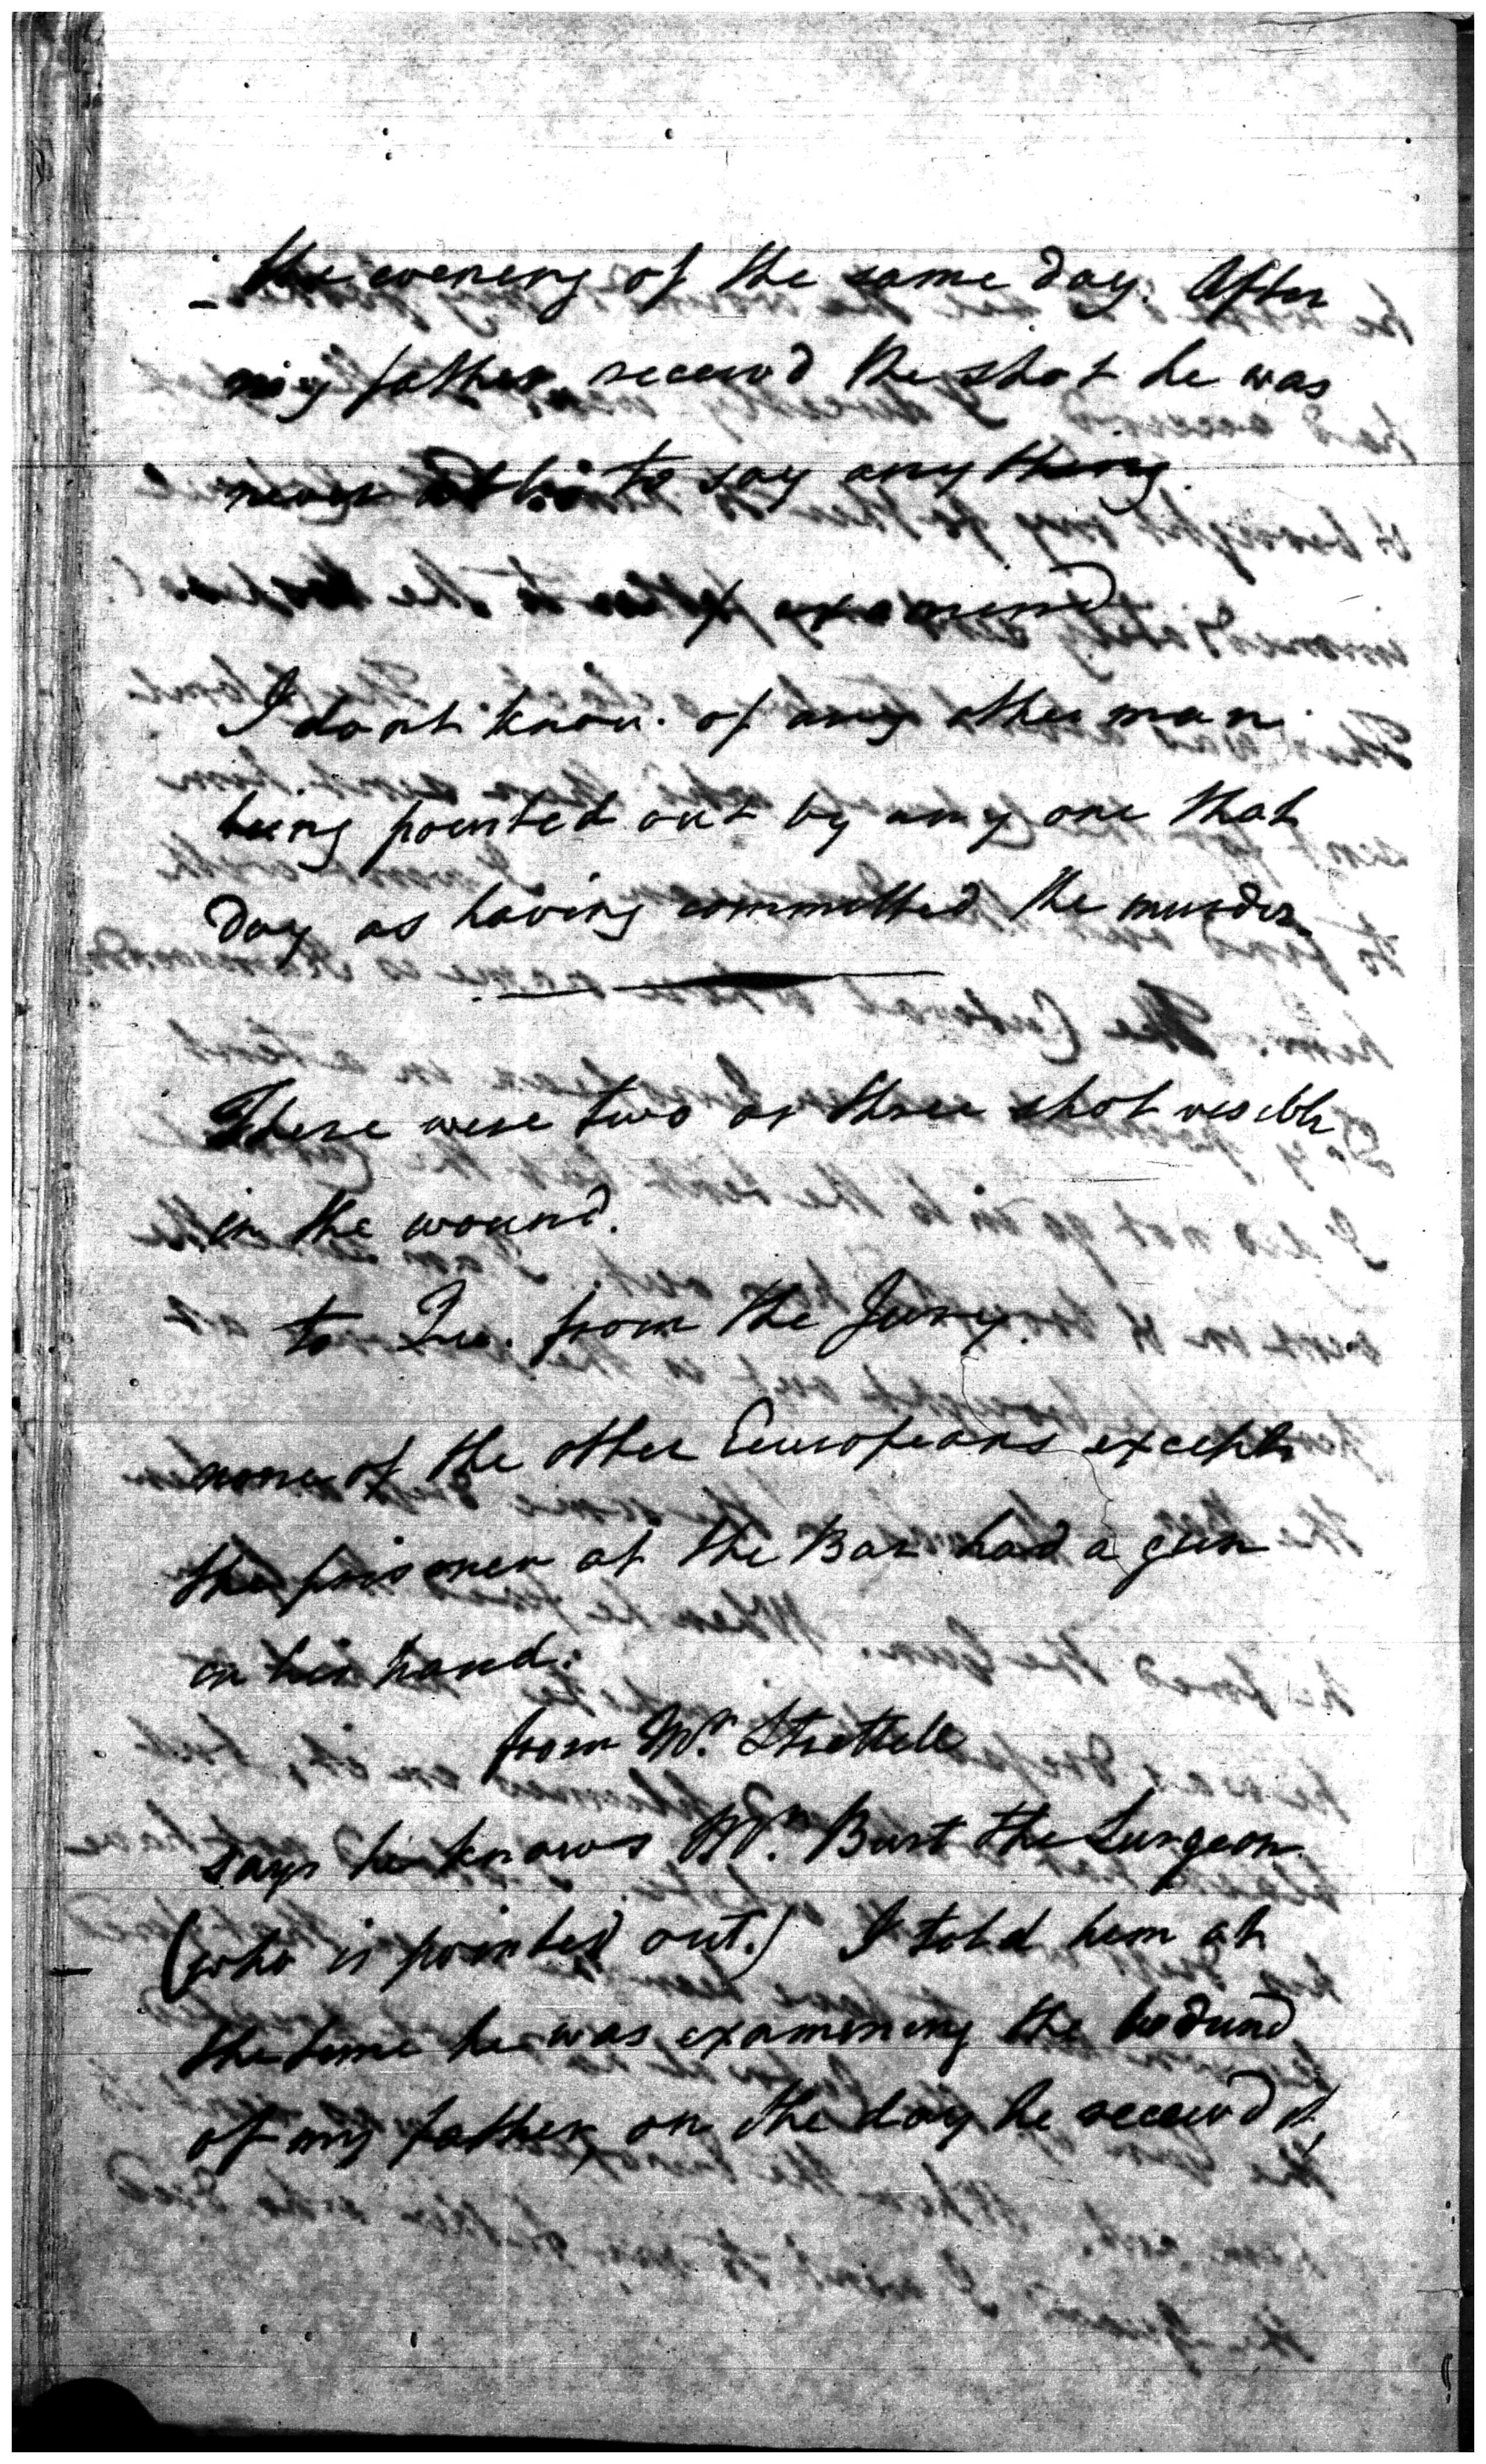 the evening of the same day. After
my father receivd the shot he was
never able to say any thing.
X examind
I dont know. of any other man
being pointed out by any one that
day as having committed the murder.
There were two or three shot visible
in the wound.
to Qu. from the Jury.
none of the other Europeans except
the prisoner at the Bar had a gun
in his hand.
from Mr. Strettell
says he knows Mr. Burt the Surgeon
(who is pointed out.) I told him at
the time he was examining the wound
of my father on the day he receivd it,